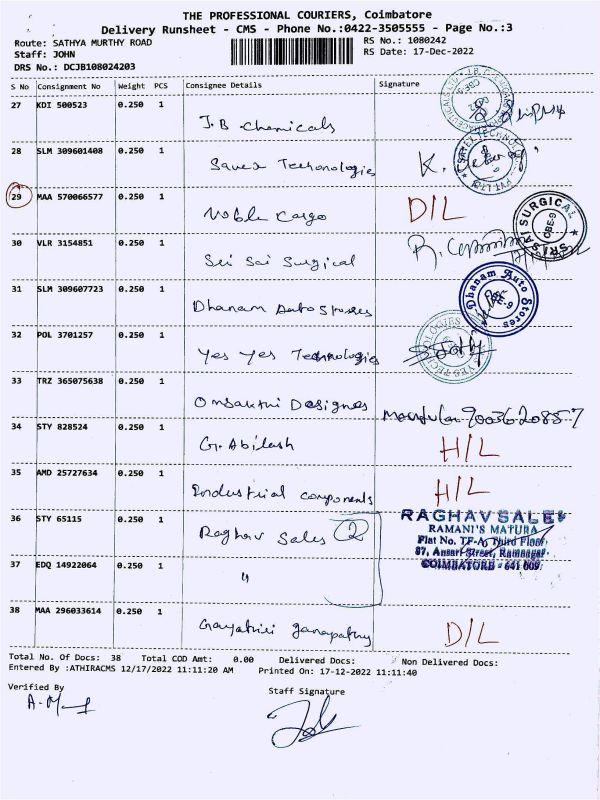 THE PROFESSIONAL COURIERS, Coimbatore
Delivery Runsheet - CMS - Phone No.:0422-3505555 - Page No.:3
Route: SATHYA MURTHY ROAD
RS No.: 1080242
Staff: JOHN
RS Date: 17-Dec-2022
DRS No.: DCJB108024203
S No Consignment No Weight PCS Consignee Details Signature
27 KDI 500523 0.250 1
J.B chemicals
28 SLM 309601408 0.250 1
Technologies
K.
29 MAA 570066577 0.250 1
Noble Cargo D/L
SRI SAI SURGICAL
CBE-9
30 VLR 3154851 0.250 1
Sri Sai Surgical
31 SLM 309607723 0.250 1
Dhanam Auto Spares
Dhanam Auto Stores
CBE-9
32 POL 3701257 0.250 1
Yes Yes Technologies
33 TRZ 365075638 0.250 1
Omsakthi Designes
9003620857
34 STY 828524 0.250 1
G. Abilash H/L
35 AMD 25727634 0.250 1
Industrial components H/L
36 STY 65115 0.250 1
Raghav Sales 2
RAGHAV SALES
RAMANI'S MATURA
Flat No. TF-A, Third Floor
87, Ansari Street, Ramnagar
COIMBATORE - 641 009
37 EDQ 14922064 0.250 1
"
38 MAA 296033614 0.250 1
Gayathiri ganapathy D/L
Total No. Of Docs: 38 Total COD Amt: 0.00 Delivered Docs: Non Delivered Docs:
Entered By :ATHIRACMS 12/17/2022 11:11:20 AM Printed On: 17-12-2022 11:11:40
Verified By
Staff Signature